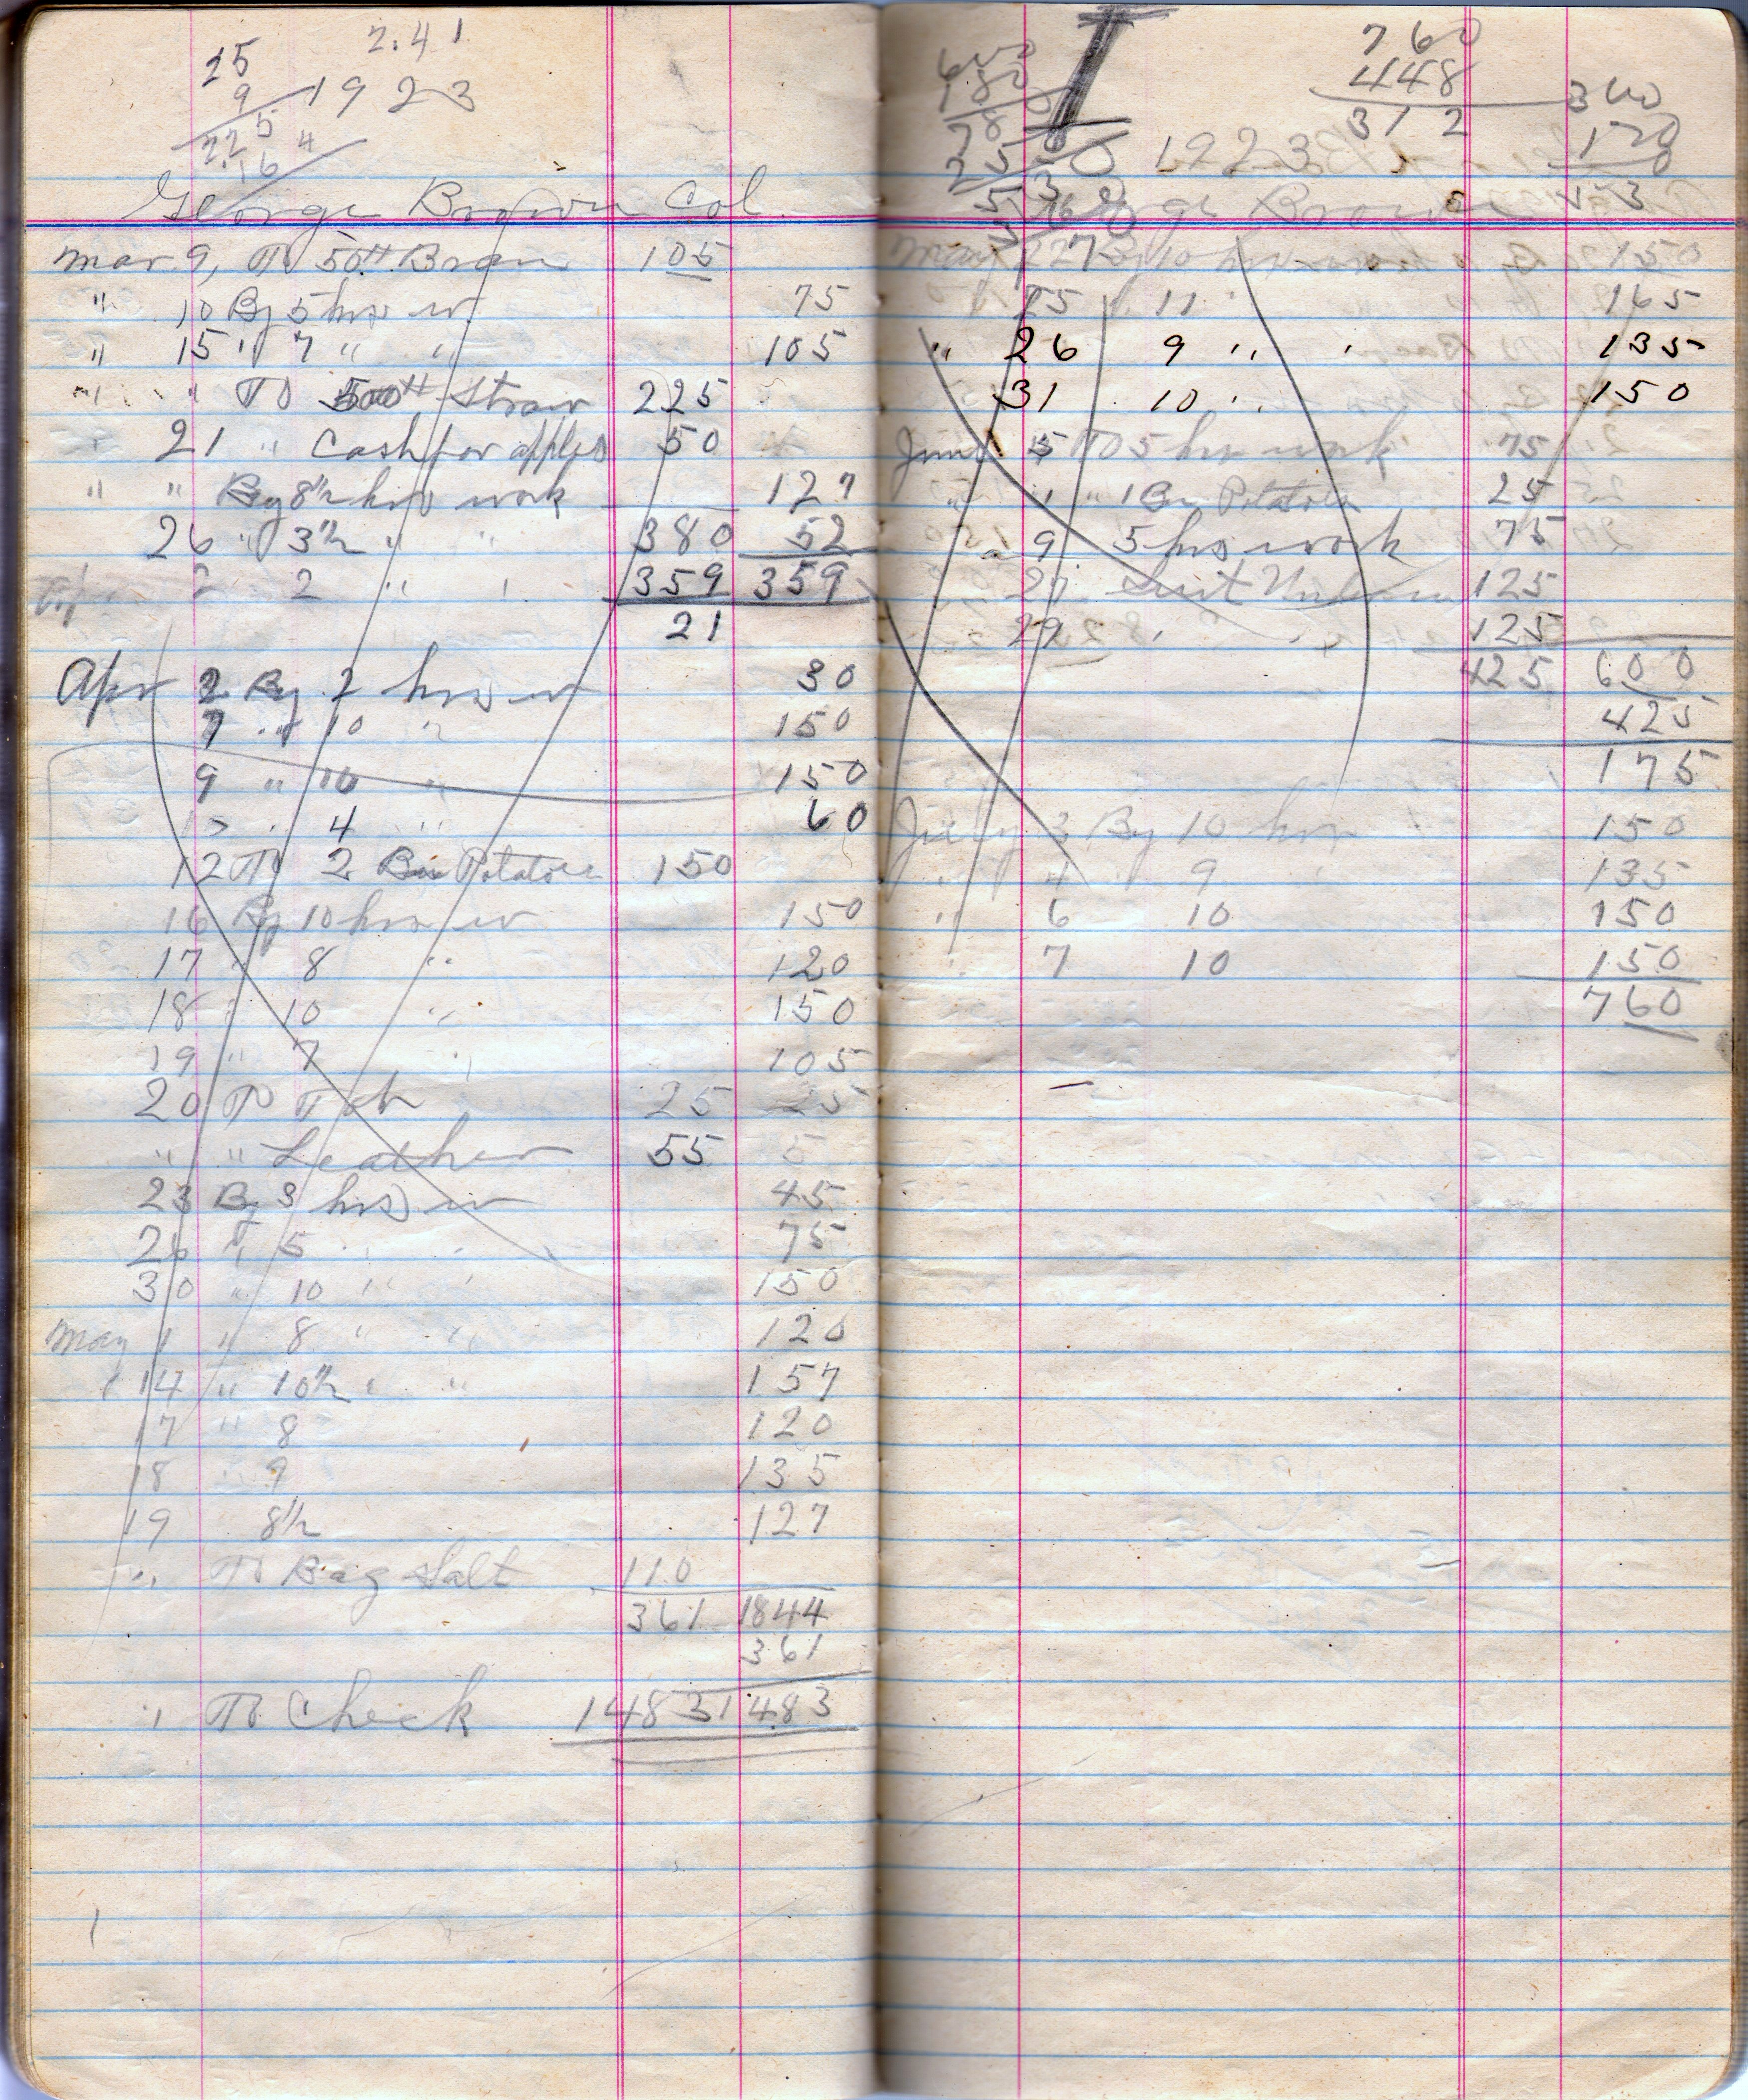 2.41
15
9
1923
225
4
.16
George Brown Col.
Mar 9, To 50# Bran 105
" 10 By 5 hrs w 75
" 15 " 7 " " 105
" " To 500# Straw 225
21 " Cash for apples 50
" " By 8 1/2 hrs work 127
26 " 3 1/2 " " 380 52
Apr 2 2 " " 359 359
21
Apr 2 By 2 hrs w 30
7 " 10 " 150
9 " 10 " 150
4 " 60
12 To 2 Bu Potatoes 150
16 By 10 hrs w 150
17 " 8 " 120
18 " 10 " 150
19 " 7 " 105
20 To 25
" " Leather 55
23 By 3 hrs w 45
26 " 5 " " 75
30 " 10 " " 150
May 1 " 8 " " 120
14 " 10 1/2 " " 157
17 " 8 120
18 " 9 135
19 8 1/2 127
" To Bag Salt 110
361 1844
361
" To Check 1483 1483
760
448
312
360
1923
George Brown
May 22 By 10 hrs 150
25 11 " 165
" 26 9 " " 135
31 10 " " 150
June 5 To 5 hrs work 75
" " 1 Bu Potatoes 25
" 9 5 hrs work 75
27 Suit 125
29 " " 125
425 600
425
175
July 3 By 10 hrs 150
" 4 9 " 135
" 6 10 150
" 7 10 150
760